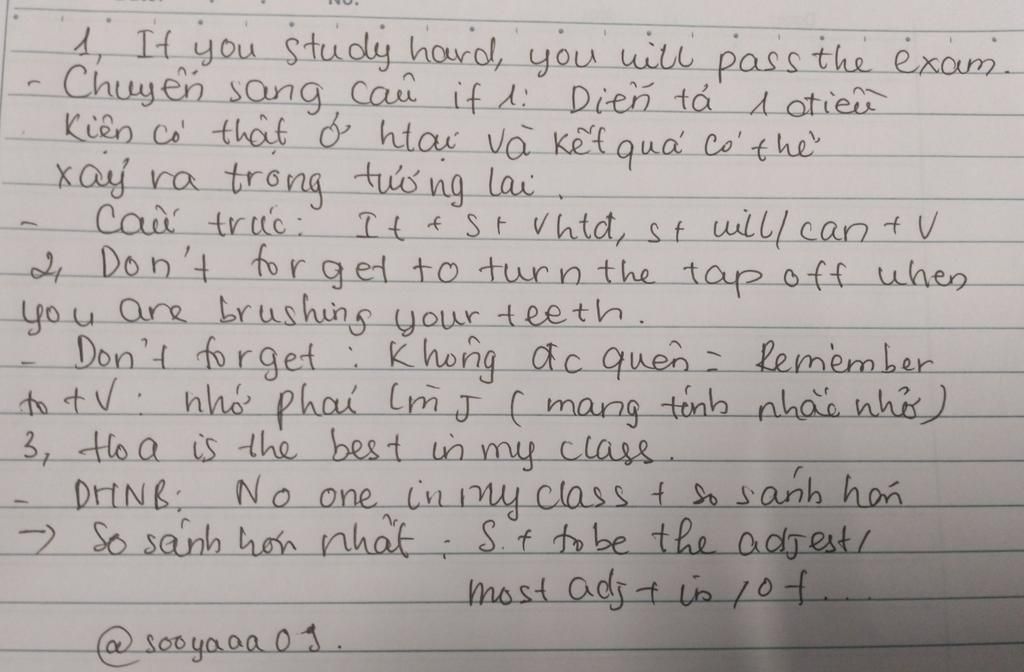 No.
1, If you study hard, you will pass the exam.
- Chuyển sang câu if 1: Diễn tả 1 đtiều
kiện có thật ở htại và kết quả có thể
xảy ra trong tương lai.
- Cấu trúc: If + S + Vhtđ, S + will/can + V
2, Don't forget to turn the tap off when
you are brushing your teeth.
- Don't forget: Không đc quên = Remember
to + V: nhớ phải làm J (mang tính nhắc nhở)
3, Hoa is the best in my class.
- DHNB: No one in my class + so sánh hơn
→ So sánh hơn nhất: S + tobe the adjest/
most adj + in / of...
@sooyaaa03.